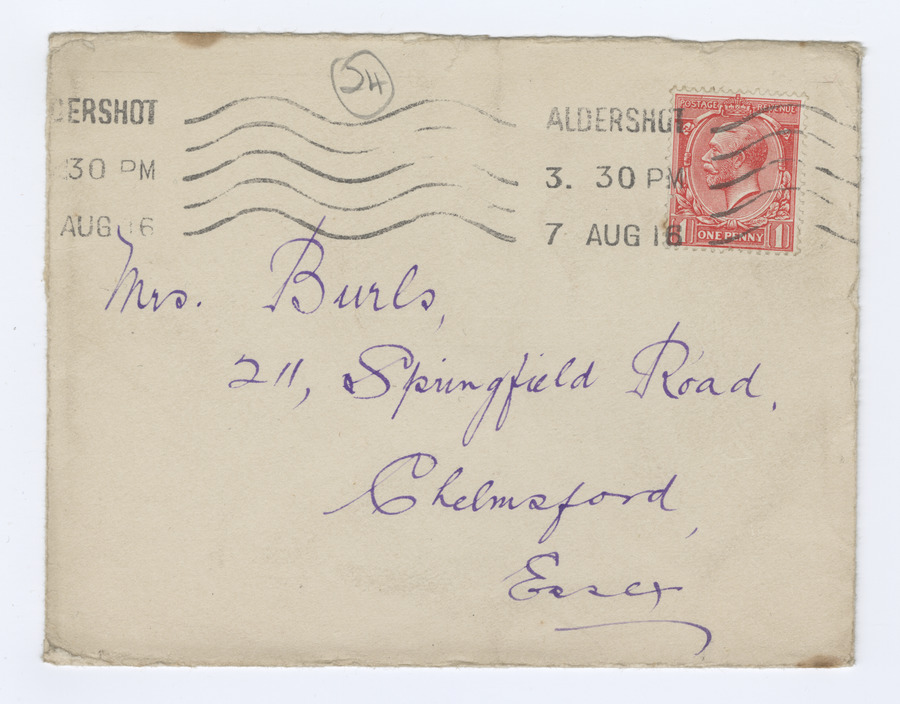 54
DERSHOT
30 PM
AUG 16
ALDERSHOT
3. 30 PM
7 AUG 16
POSTAGE REVENUE
1 ONE PENNY 1
Mrs. Burls,
211, Springfield Road,
Chelmsford,
Essex